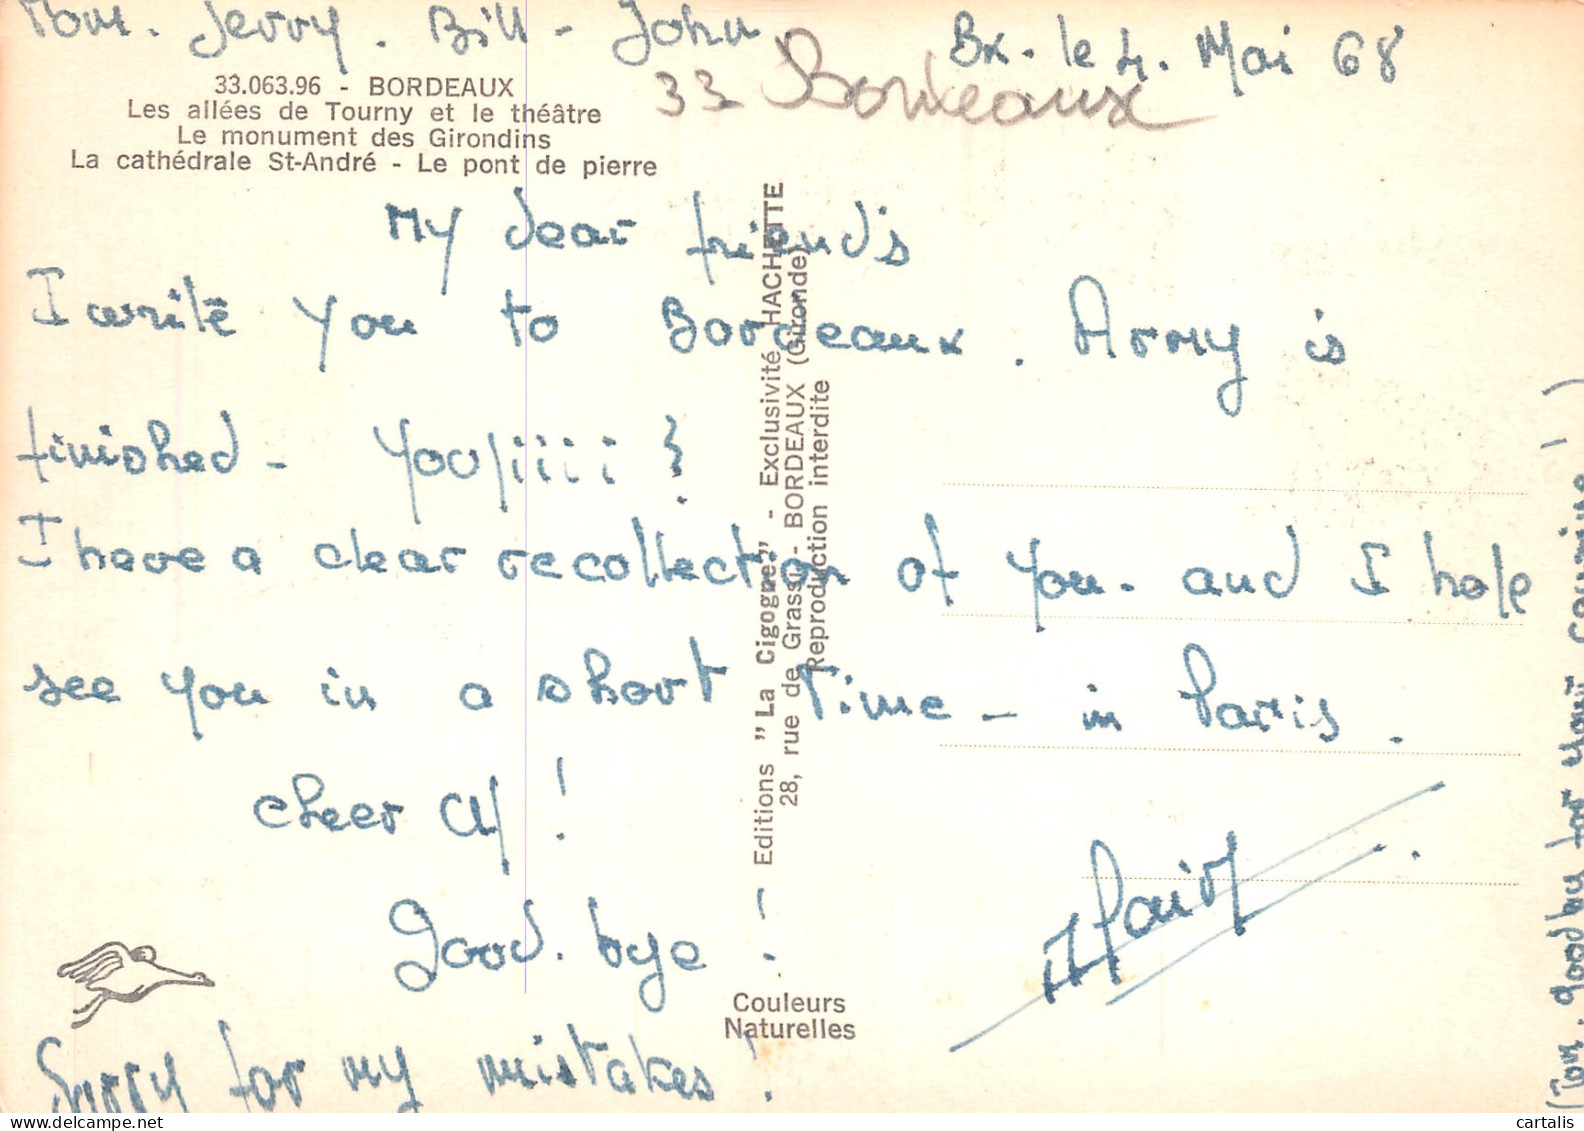 Tom. Jerry. Bill - John.
Bx. le 4. Mai 68
33 Bordeaux
33.063.96 - BORDEAUX
Les allées de Tourny et le théâtre
Le monument des Girondins
La cathédrale St-André - Le pont de pierre
My dear friend's
I write you to Bordeaux. Army is
finished - Youpiiii !
I have a clear recollection of you. and I hope
see you in a short time - in Paris.
cheer up !
Good. bye !
Sorry for my mistakes !
(Tom. goodby for your coming !)
Editions "La Cigogne" - Exclusivité HACHETTE
28, rue de Grassi - BORDEAUX (Gironde)
Reproduction interdite
Couleurs
Naturelles
cartalis